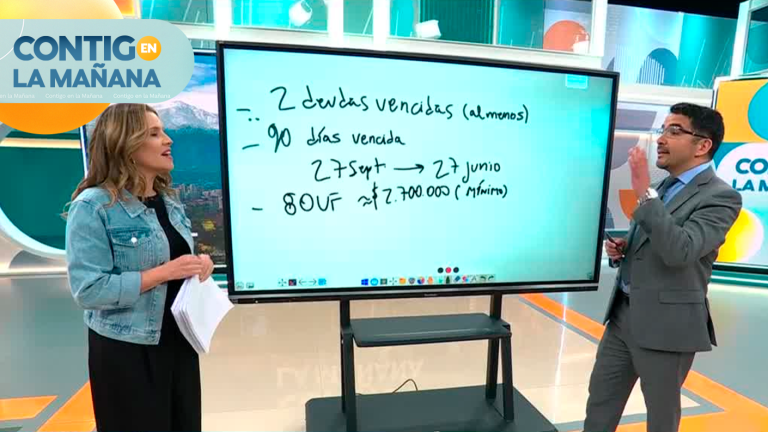 CONTIGO EN
LA MAÑANA
-. 2 deudas vencidas (al menos)
- 90 días vencida
27 sept → 27 junio
- 80UF ≈ $2.700.000 (MÍNIMO)
CONTIG
LA M